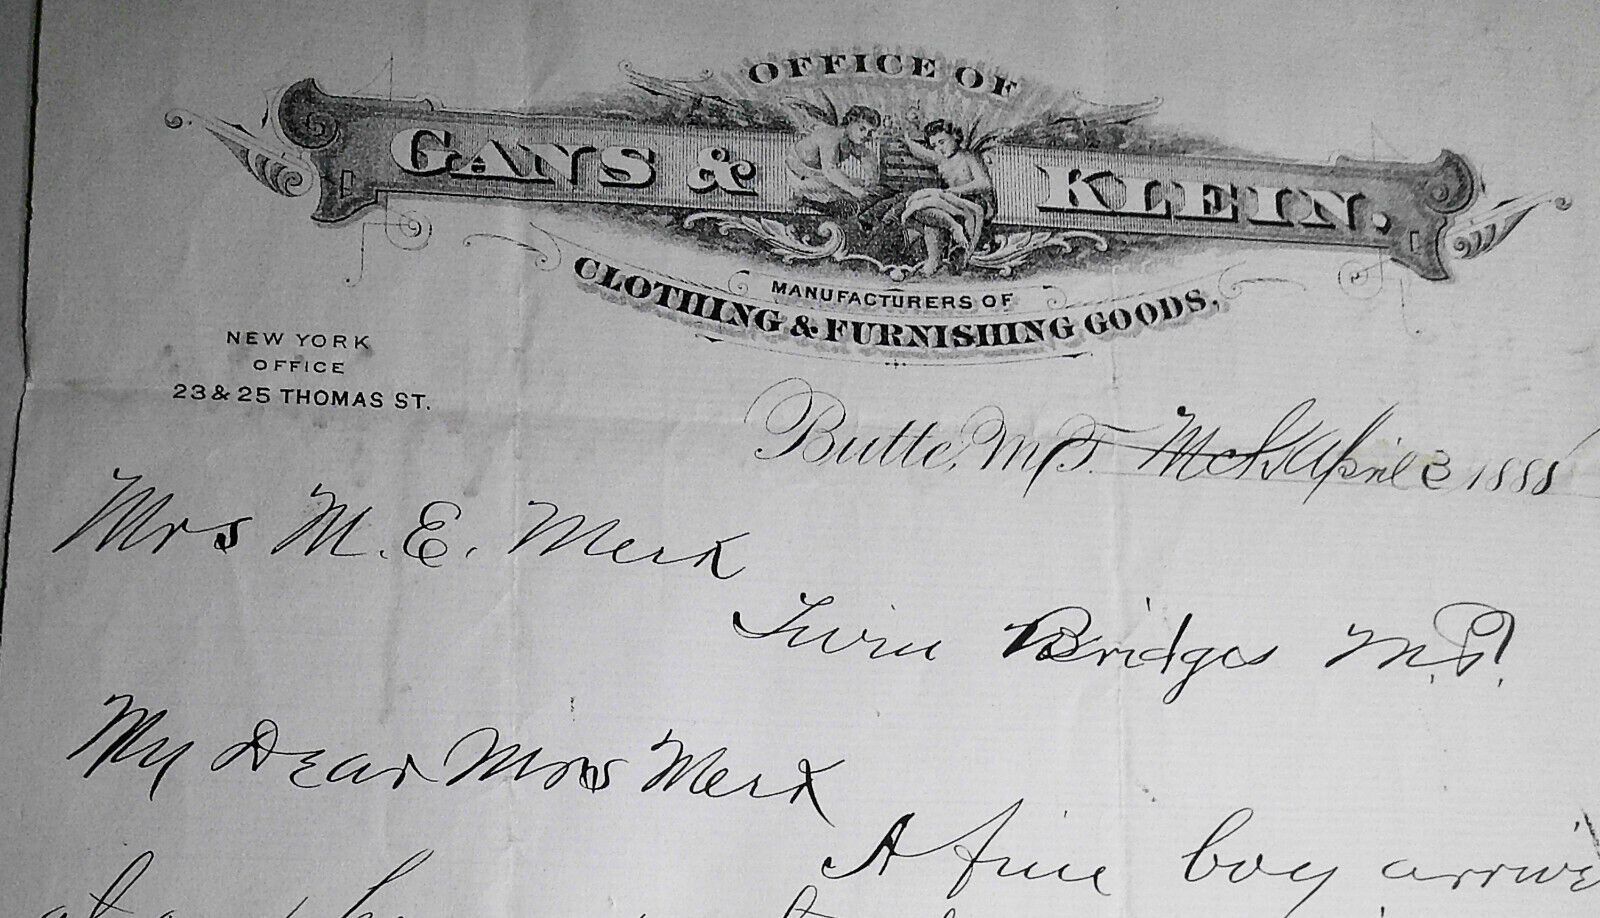 OFFICE OF
GANS & KLEIN.
MANUFACTURERS OF
CLOTHING & FURNISHING GOODS,
NEW YORK
OFFICE
23 & 25 THOMAS ST.
Butte, M.T. April 3 1888
Mrs M. E. Merk
Twin Bridges M.T.
My Dear Mrs Merk
A fine boy
at